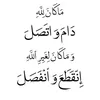 مَا كَانَ لِلَّهِ
دَامَ وَ اتَّصَلَ
وَ مَا كَانَ لِغَيرِ اللَّهِ
إِنْقَطَعَ وَ انْفَصَلَ